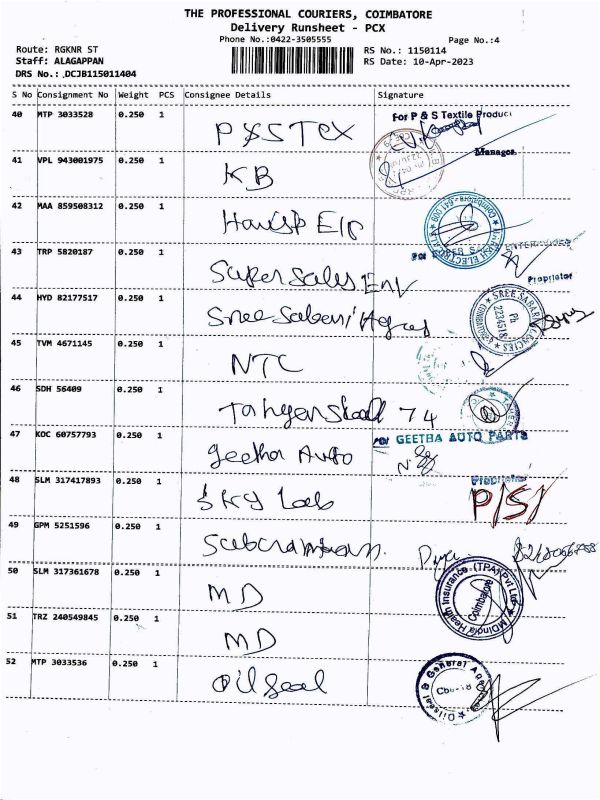 THE PROFESSIONAL COURIERS, COIMBATORE
Delivery Runsheet - PCX
Phone No.:0422-3505555
Page No.:4
Route: RGKNR ST
RS No.: 1150114
Staff: ALAGAPPAN
RS Date: 10-Apr-2023
DRS No.: ,DCJB115011404
S No Consignment No Weight PCS Consignee Details Signature
40 MTP 3033528 0.250 1 P&S TEX
For P & S Textile Product
Manager
41 VPL 943001975 0.250 1 KB
42 MAA 859508312 0.250 1
43 TRP 5820187 0.250 1 Super Sales Env
Proprietor
44 HYD 82177517 0.250 1 Sree Sabari
SREE SABARI AGENCIES
Ph
2234518
45 TVM 4671145 0.250 1 NTC
46 SDH 56409 0.250 1 74
47 KOC 60757793 0.250 1 Geetha Auto
For GEETHA AUTO PARTS
Proprietor
48 SLM 317417893 0.250 1 Sky Lab
P/S/
49 GPM 5251596 0.250 1
50 SLM 317361678 0.250 1 MD
MDIndia Health Insurance (TPA) Pvt Ltd
Coimbatore
51 TRZ 240549845 0.250 1 MD
52 MTP 3033536 0.250 1 Oil Seal
Oilseal & General Agencies
Cbe-18